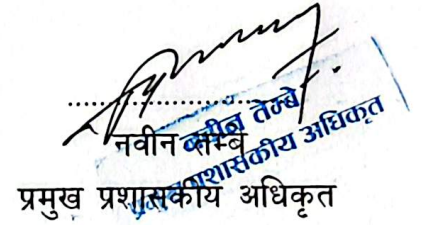 नवीन तेम्बे
प्रमुख प्रशासकीय अधिकृत
नवीन तेम्बे
प्रशासकीय अधिकृत